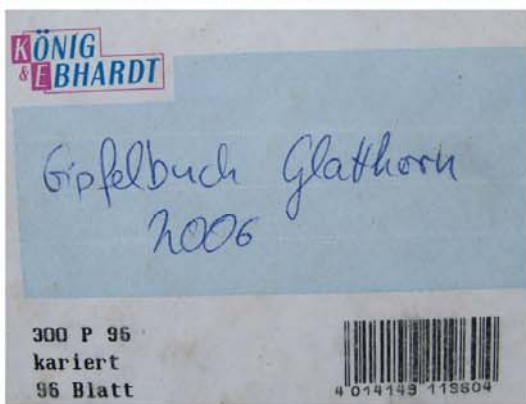 KÖNIG
& EBHARDT
Gipfelbuch Glatthorn
2006
300 P 96
kariert
96 Blatt
4 014149 119604